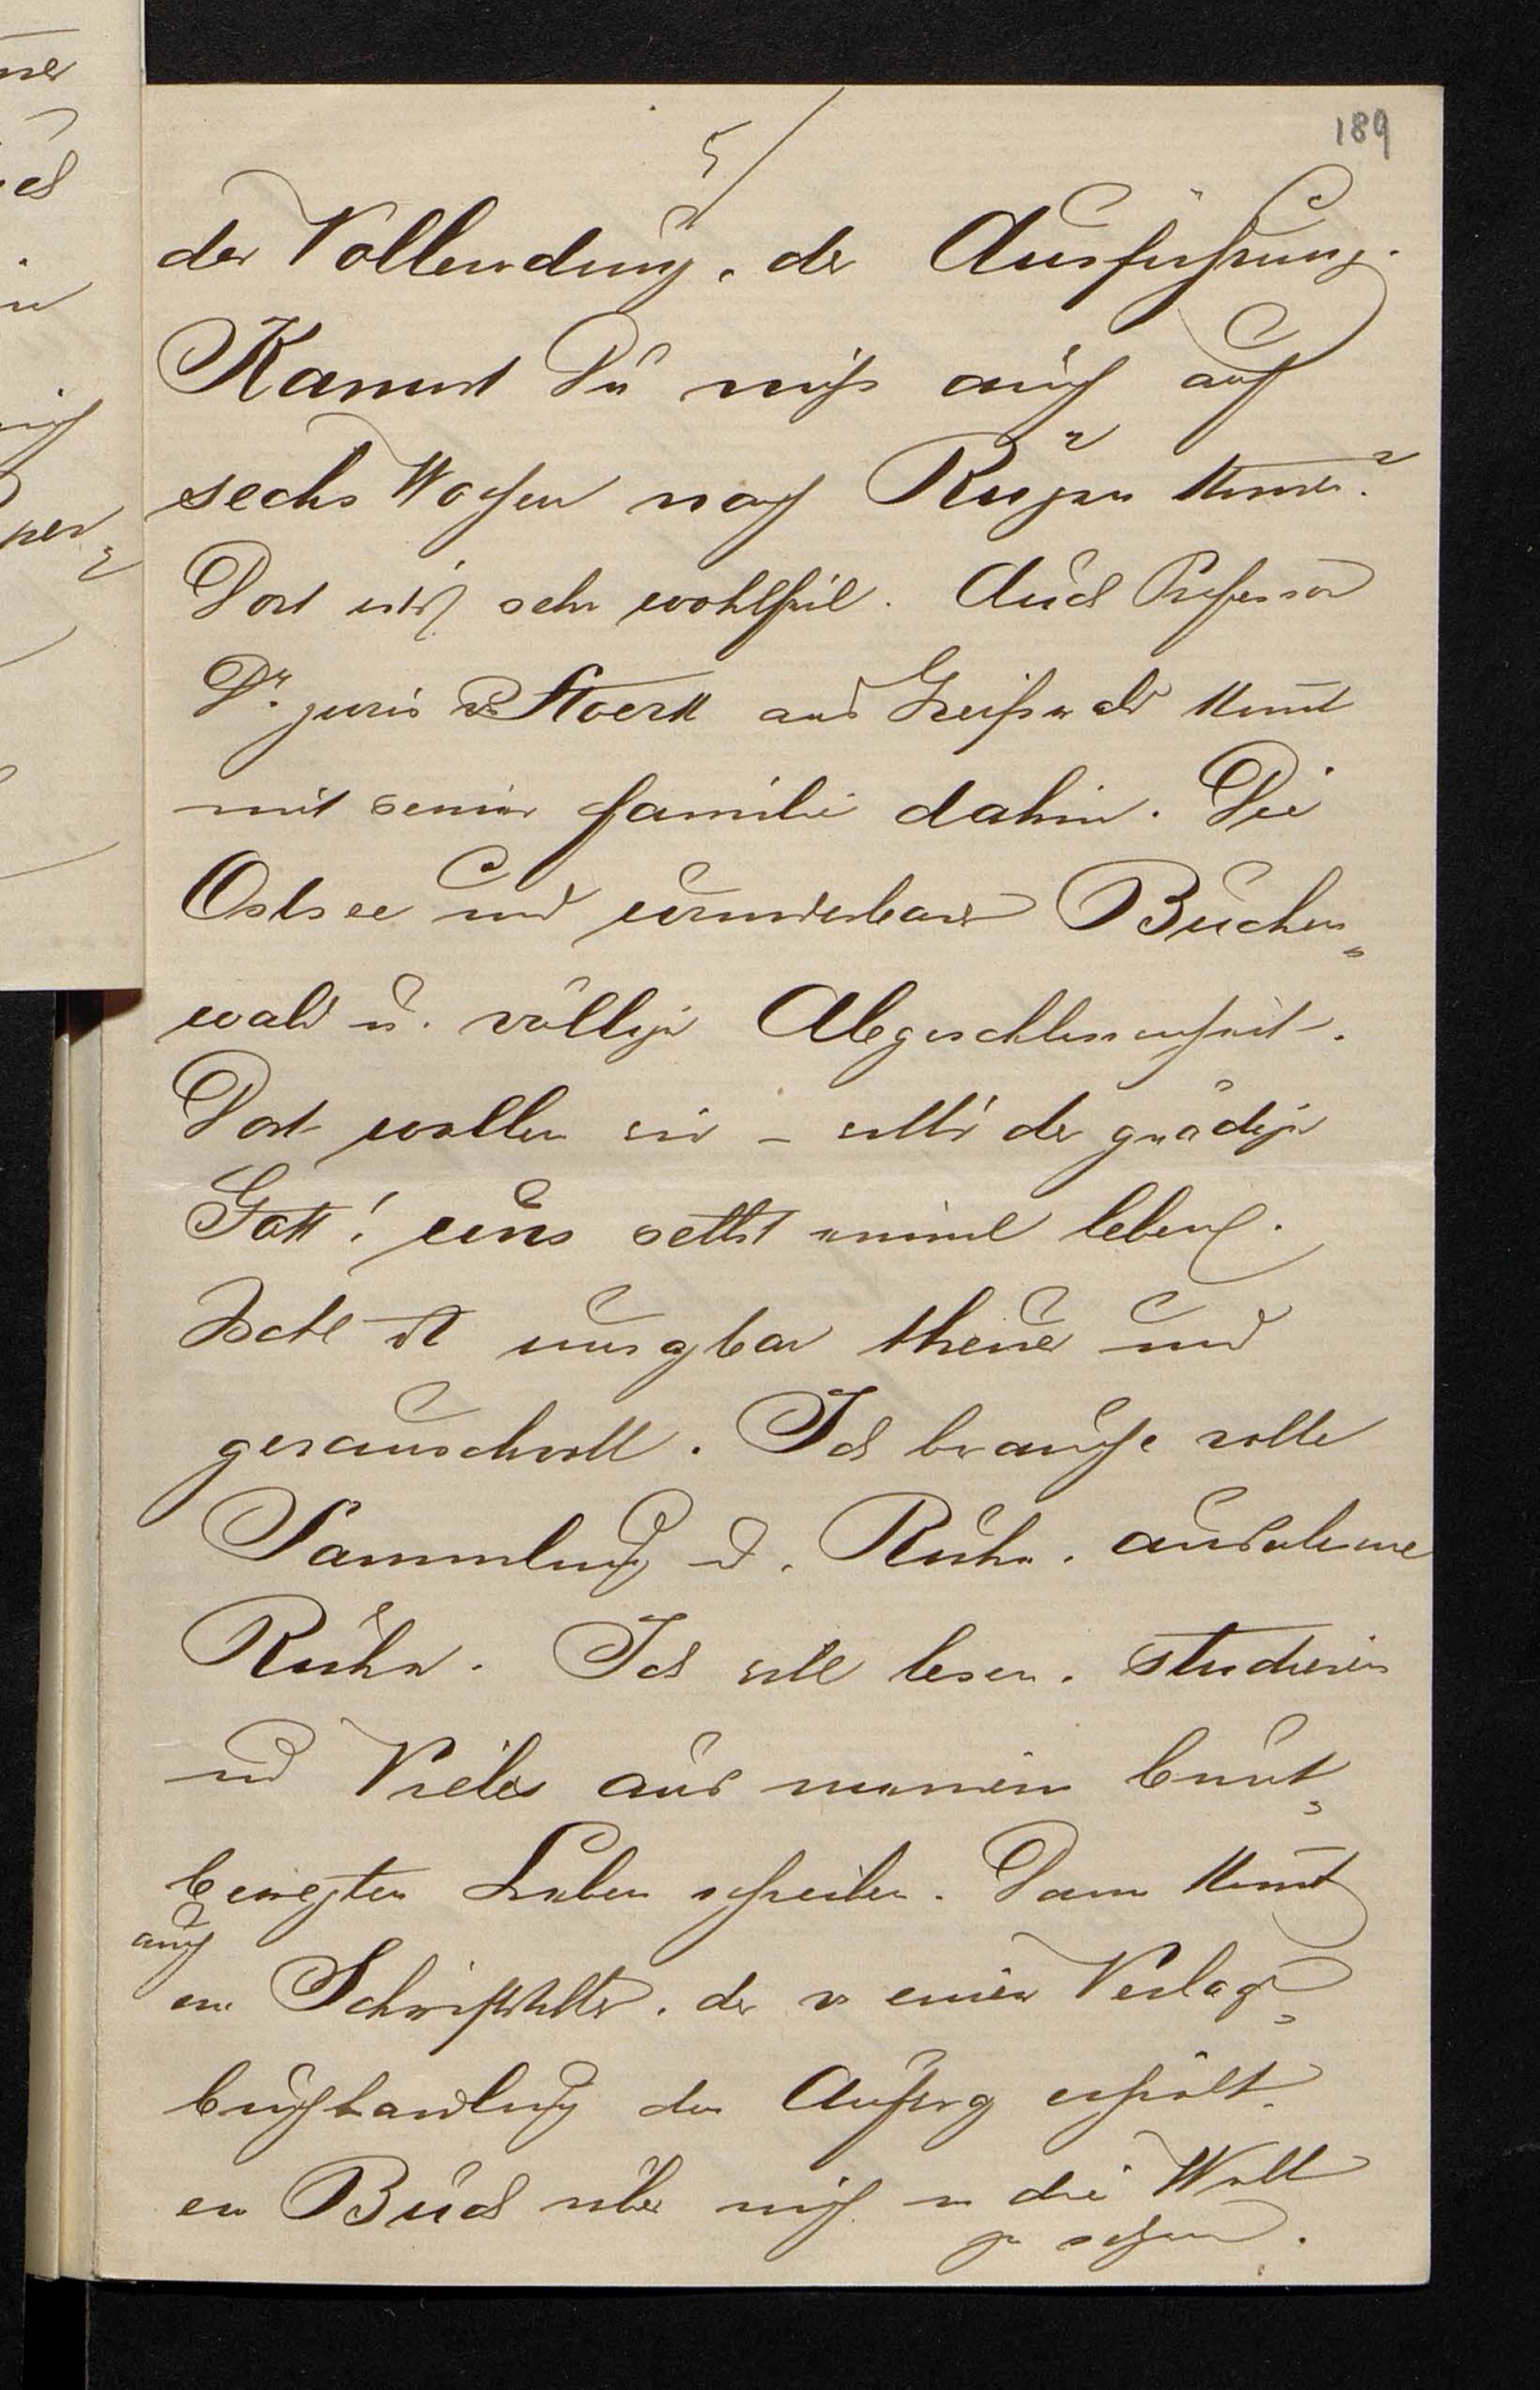 189
5/
der Vollendung, der Ausführung.
Kannst Du nicht auch auf
sechs Wochen nach Rügen kommen?
Dort ists sehr wohlfeil. Auch Professor
Dr. juris v Stoerk aus Greifswald kommt
mit seiner Familie dahin. Die
Ostsee und wunderbarer Buchen„
wald u. völlige Abgeschlossenheit.
Dort wollen wir – will's der gnädige
Gott! uns selbst einmal leben.
Ischl ist unsagbar theuer und
geräuschvoll. Ich brauche volle
Sammlung u. Ruhe,
Ruhe. Ich will lesen, studieren
und Vieles aus meinem bunt„
bewegten Leben schreiben. Dann kommt
auch
ein Schriftsteller, der v einer Verlags„
buchhandlung den Auftrag erhielt,
ein Buch über mich in die Welt
zu setzen.